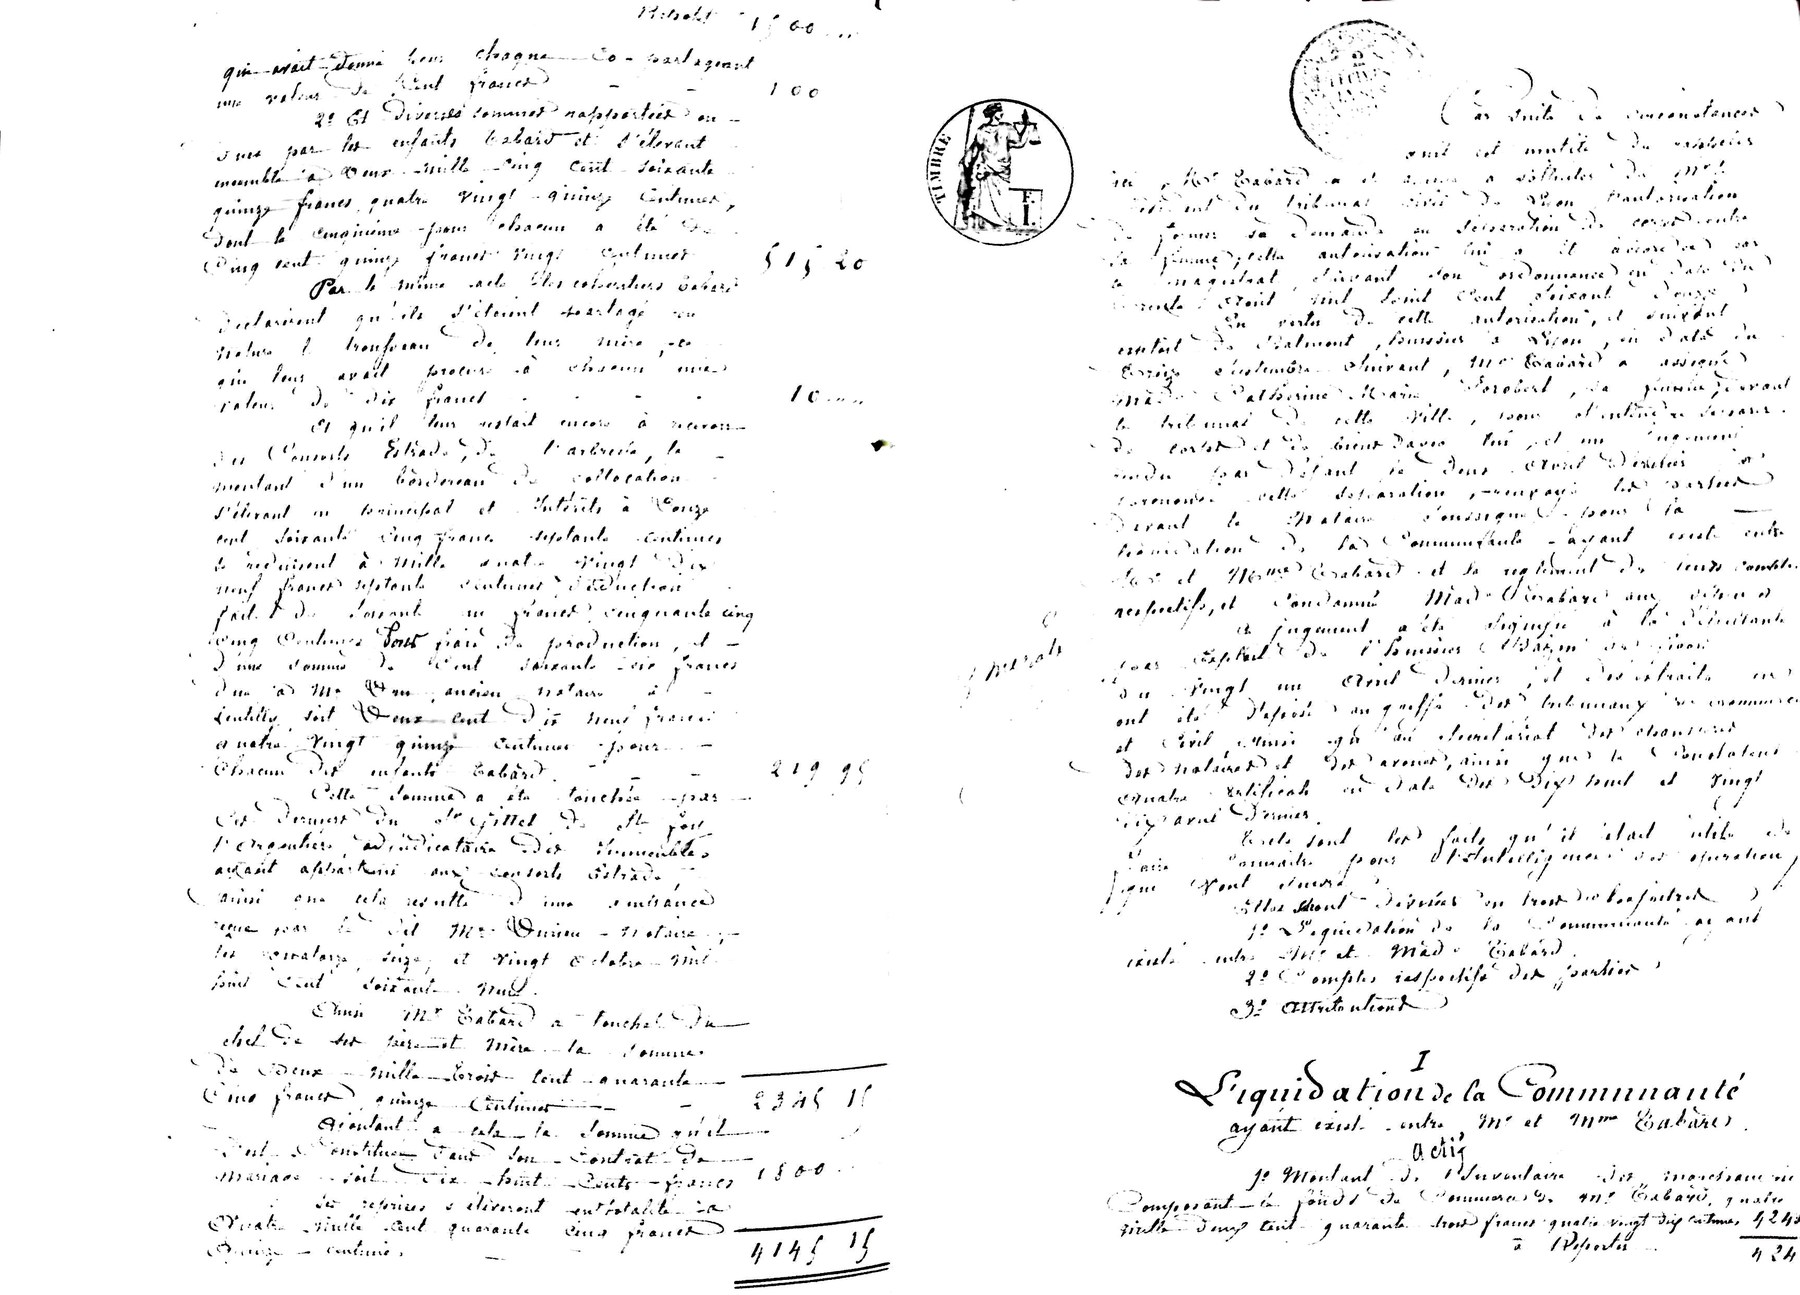 Report 1500
qui avait donné pour chaque co-partageant
une valeur de Cent francs 100
2º Et diverses sommes rapportées ou
dues par les enfants Tabard et s'élevant
ensemble à Deux mille cinq cent soixante
quinze francs quatre vingt quinze centimes,
dont le cinquième pour chacun a été de
Cinq cent quinze francs vingt centimes 515 20
Par le même acte les cohéritiers Tabard
déclarèrent qu'ils s'étaient partagé en
nature le trousseau de leur mère, ce
qui leur avait procuré à chacun une
valeur de dix francs 10
Et qu'il leur restait encore à recevoir
des Consorts Estrade, de l'arbresle, le
montant d'un bordereau de collocation
s'élevant en principal et intérêts à Douze
cent soixante cinq francs septante centimes
se réduisent à mille quatre vingt dix
neuf francs septante centimes, déduction
faite de soixante un francs cinquante cinq
cinq centimes pour frais de production, et
d'une somme de Cent soixante six francs
due à Me ancien notaire à
Lentilly, soit Deux cent dix neuf francs
quatre vingt quinze centimes pour
chacun des enfants Tabard. 219 95
Cette somme a été touchée par
ces derniers du Sr Gittet de Ste foy
l'Argentière, adjudicataire des immeubles
ayant appartenu aux consorts Estrade
ainsi que cela résulte d'une quittance
reçue par le dit Me notaire,
les quatorze, seize, et vingt octobre mil
huit Cent soixante neuf.
Ainsi Mr Tabard a touché du
chef de ses père et mère la somme
de Deux mille trois cent quarante
Cinq francs quinze centimes 2345 15
Ajoutant à cela la somme qu'il
s'est constituée dans son Contrat de
mariage soit Dix huit Cents francs 1800
ses reprises s'élèveront en totalité à
Quatre mille cent quarante cinq francs
Quinze centimes. 4145 15
TIMBRE
Par suite de circonstances
qu'il est inutile de rappeler
ici, Mr Tabard a été amené à solliciter de Mr le
Président du tribunal civil de Lyon l'autorisation
de former sa demande en séparation de corps contre
sa femme, cette autorisation lui a été accordée par
le magistrat, suivant son ordonnance en date du
trente Août mil huit Cent soixante douze
En vertu de cette autorisation, et suivant
exploit de Rialmont, huissier à Lyon, en date du
treize Septembre suivant, Mr Tabard a assigné
Made Catherine Marie Forobert, sa femme, devant
le tribunal de cette ville, pour s'entendre séparer
de corps et de biens d'avec lui, et un jugement
rendu par défaut le deux Avril dernier a
prononcé cette séparation, renvoyé les parties
devant le Notaire soussigné pour la
liquidation de la Communauté ayant existé entre
Mr et Mme Tabard et le règlement de leurs comptes
respectifs, et condamné Made Tabard aux dépens
Ce jugement a été signifié à la défaillante
par exploit de l'huissier Bazin de Lyon
du vingt un Avril dernier, et des extraits en
ont été déposés au greffe des tribunaux de commerce
et civil, ainsi qu'au secrétariat des chambres
des notaires et des avoués, ainsi que le constatent
quatre certificats en date des Dix huit et vingt
six avril dernier.
Tels sont les faits qu'il était utile de
faire connaître pour l'intelligence des opérations
que vont suivre
Elles seront divisées en trois
1º Liquidation de la Communauté ayant
existé entre Mr et Made Tabard.
2º Comptes respectifs des parties
3º Attributions
I
Liquidation de la Communauté
ayant existé entre Mr et Mme Tabard.
Actif
1º Montant de l'inventaire des marchandises
Composant le fonds de commerce de Mr Tabard, quatre
mille deux cent quarante trois francs quatre vingt dix centimes 4243
à Reporter 424